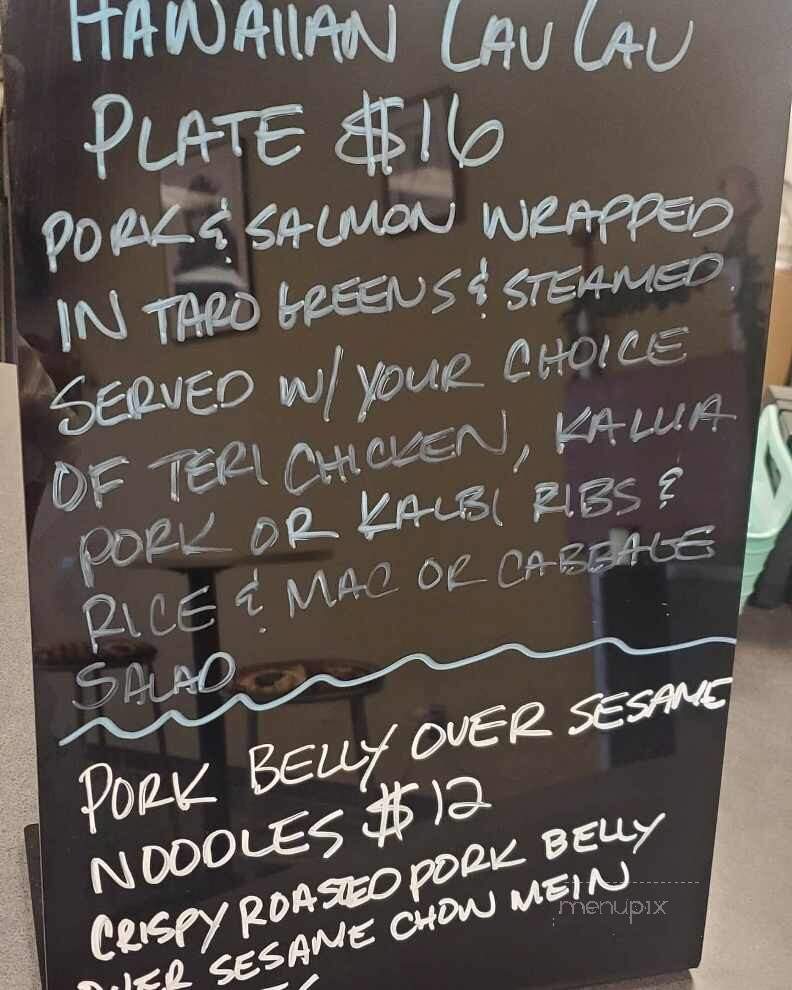 HAWAIIAN LAU LAU
PLATE $16
PORK & SALMON WRAPPED
IN TARO GREENS & STEAMED
SERVED W/ YOUR CHOICE
OF TERI CHICKEN, KALUA
PORK OR KALBI RIBS &
RICE & MAC OR CABBAGE
SALAD
PORK BELLY OVER SESAME
NOODLES $12
CRISPY ROASTED PORK BELLY
OVER SESAME CHOW MEIN
menupix